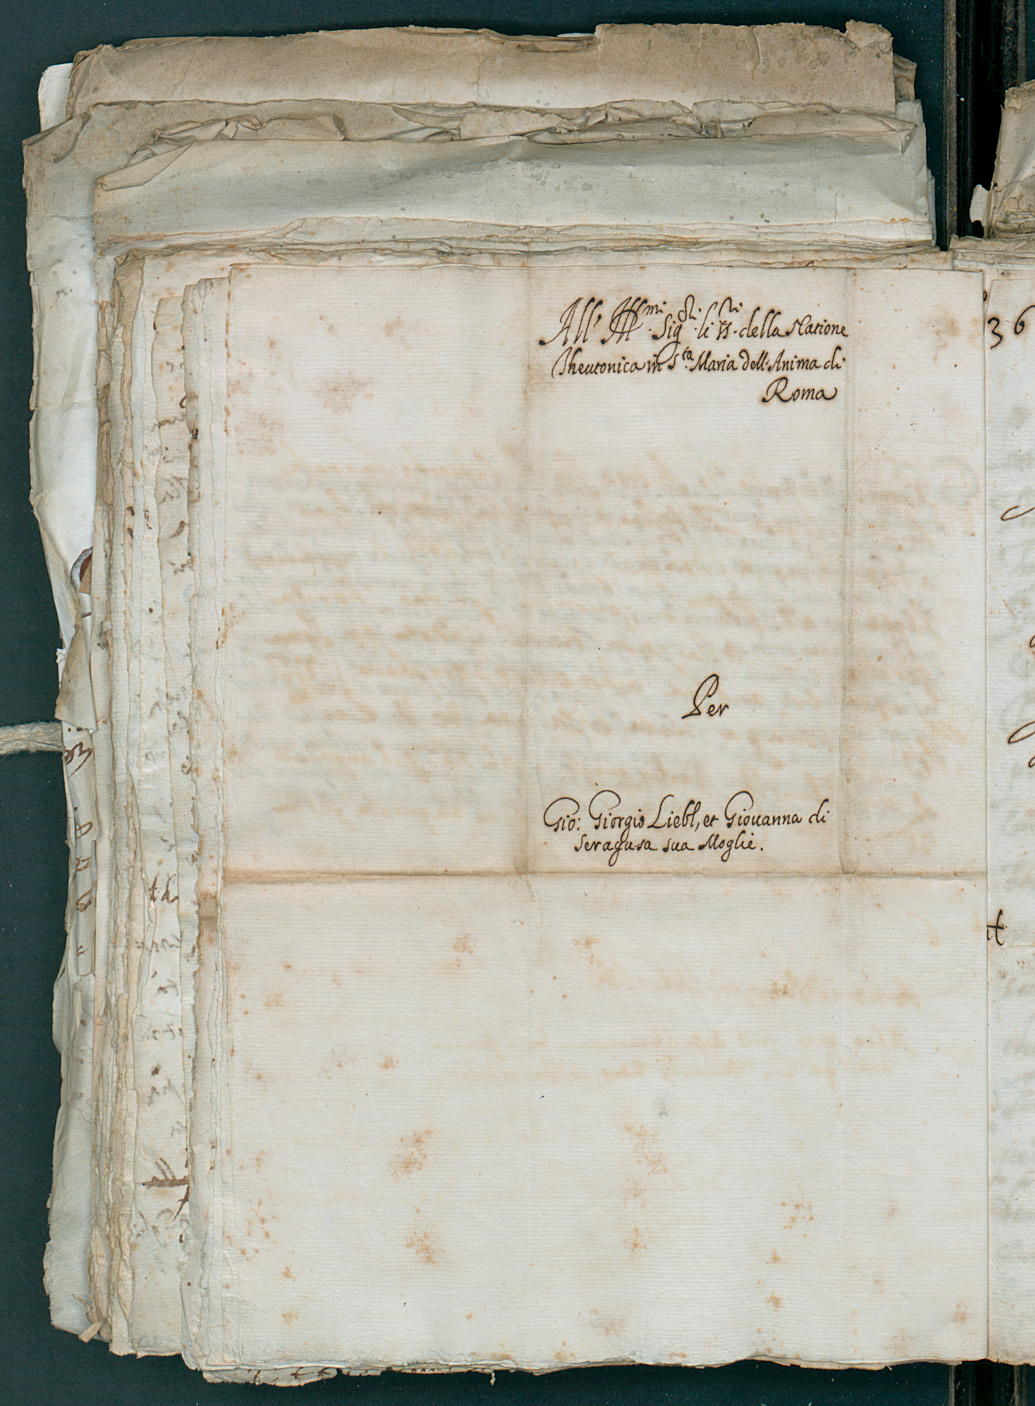 All' Ill.mi Sig.ri li SS.ri della Natione
Theutonica in S.ta Maria dell'Anima di
Roma
Per
Gio: Giorgio Liebl, et Giovanna di
Seragusa sua Moglie.
36